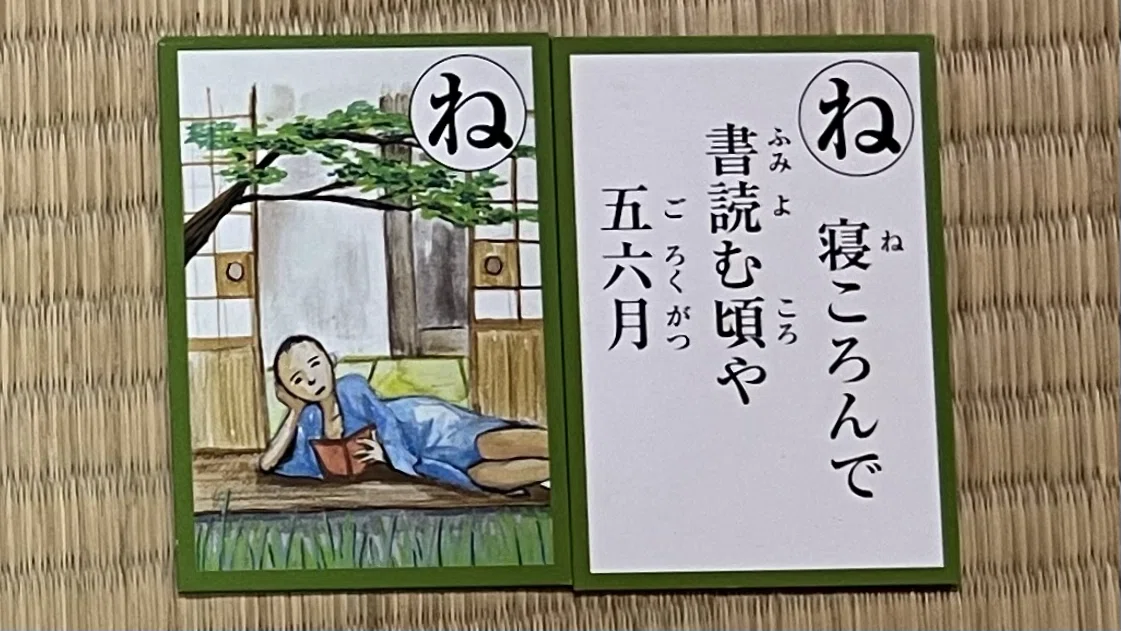 ね
ね
寝ころんで
ね
書読む頃や
ふみ よ ころ
五六月
ご ろく がつ